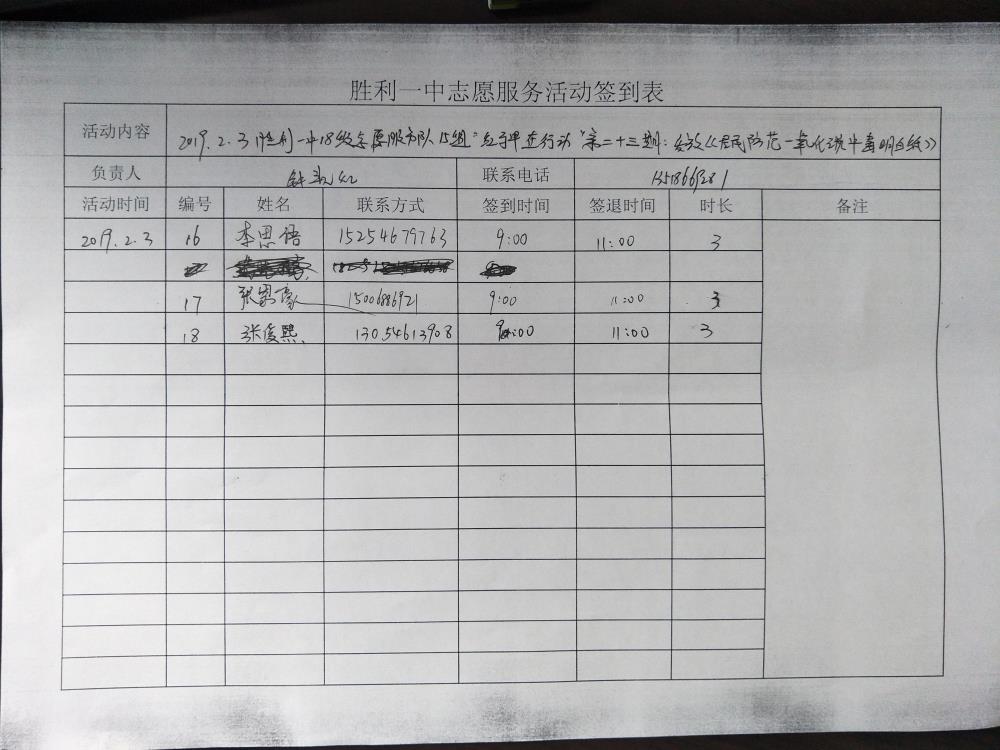 胜利一中志愿服务活动签到表
活动内容 2019.2.3 胜利一中18级志愿服务队15组"红子单在行动"第二十三期:发放《居民防范一氧化碳中毒明白纸》
负责人 联系电话
活动时间 编号 姓名 联系方式 签到时间 签退时间 时长 备注
2019.2.3 16 李思语 15254679763 9:00 11:00 3
17 15006886921 9:00 11:00 3
18 张俊熙 13054613908 9:00 11:00 3